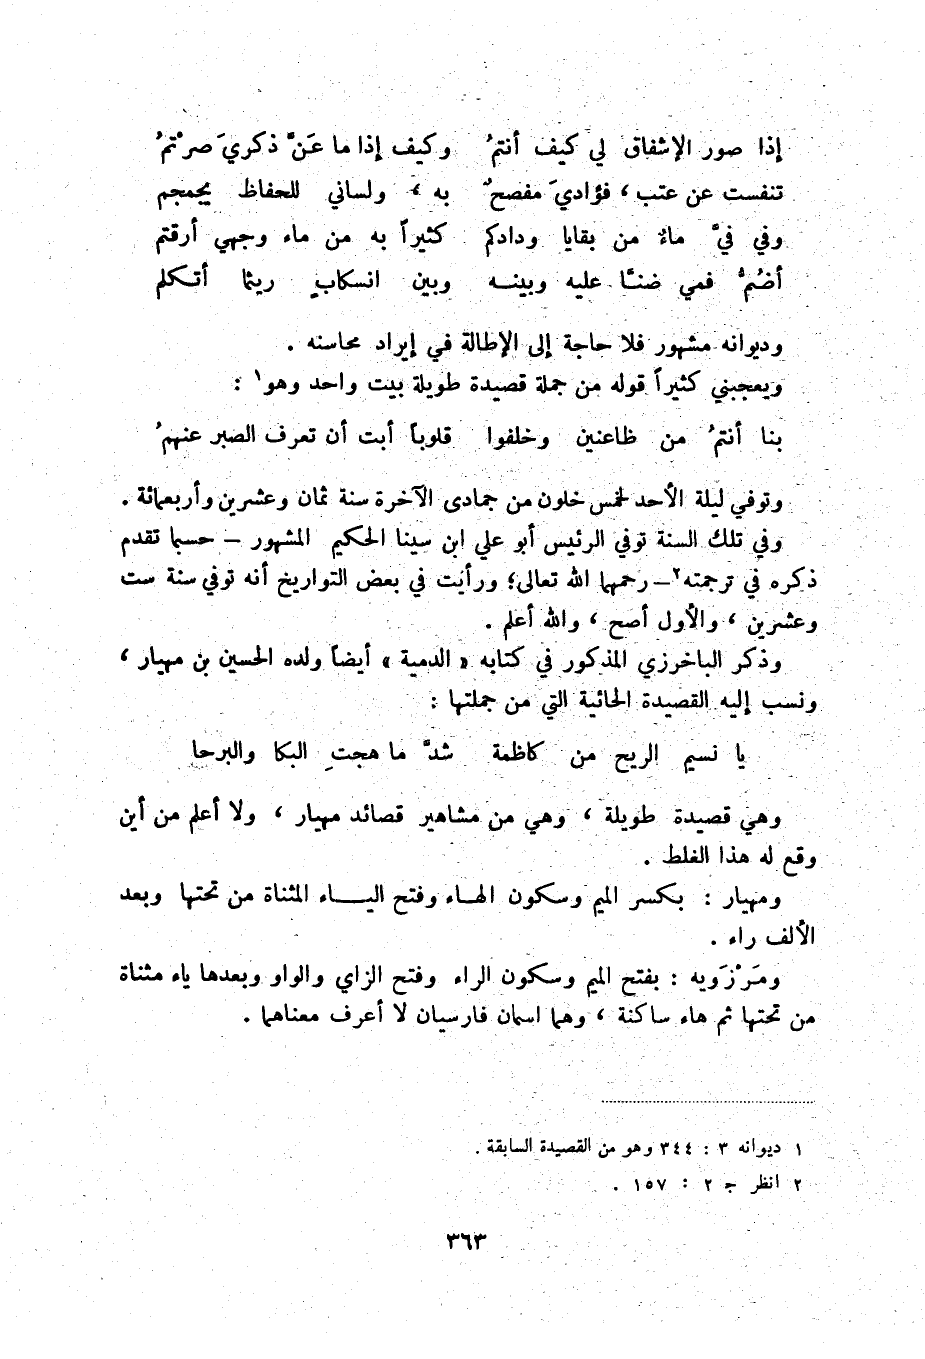 إذا صور الإشفاق لي كيف أنتمُ وكيف إذا ما عَنَّ ذكريَ صرْتمُ
تنفست عن عتب ، فؤاديَ مفصحٌ به ، ولساني للحفاظ يجمجم
وفي فيَّ ماءٌ من بقايا ودادكم كثيراً به من ماء وجهي أرقتم
أضُمُّ فمي ضنّاً عليه وبينــه وبين انسكابٍ ريثما أتكلم
وديوانه مشهور فلا حاجة إلى الإطالة في إيراد محاسنه .
ويعجبني كثيراً قوله من جملة قصيدة طويلة بيت واحد وهو١ :
بنا أنتمُ من ظاعنين وخلفوا قلوباً أبت أن تعرف الصبر عنهمُ
وتوفي ليلة الأحد لخمس خلون من جمادى الآخرة سنة ثمان وعشرين وأربعمائة .
وفي تلك السنة توفي الرئيس أبو علي ابن سينا الحكيم المشهور – حسبما تقدم
ذكره في ترجمته٢– رحمهما الله تعالى؛ ورأيت في بعض التواريخ أنه توفي سنة ست
وعشرين ، والأول أصح ، والله أعلم .
وذكر الباخرزي المذكور في كتابه « الدمية » أيضاً ولده الحسين بن مهيار ،
ونسب إليه القصيدة الحائية التي من جملتها :
يا نسيم الريح من كاظمة شدَّ ما هجتِ البكا والبرحا
وهي قصيدة طويلة ، وهي من مشاهير قصائد مهيار ، ولا أعلم من أين
وقع له هذا الغلط .
ومهيار : بكسر الميم وسكون الهـاء وفتح اليـــاء المثناة من تحتها وبعد
الألف راء .
ومَرْزَويه : بفتح الميم وسكون الراء وفتح الزاي والواو وبعدها ياء مثناة
من تحتها ثم هاء ساكنة ، وهما اسمان فارسيان لا أعرف معناهما .
١ ديوانه ٣ : ٣٤٤ وهو من القصيدة السابقة .
٢ انظر ج ٢ : ١٥٧ .
٣٦٣